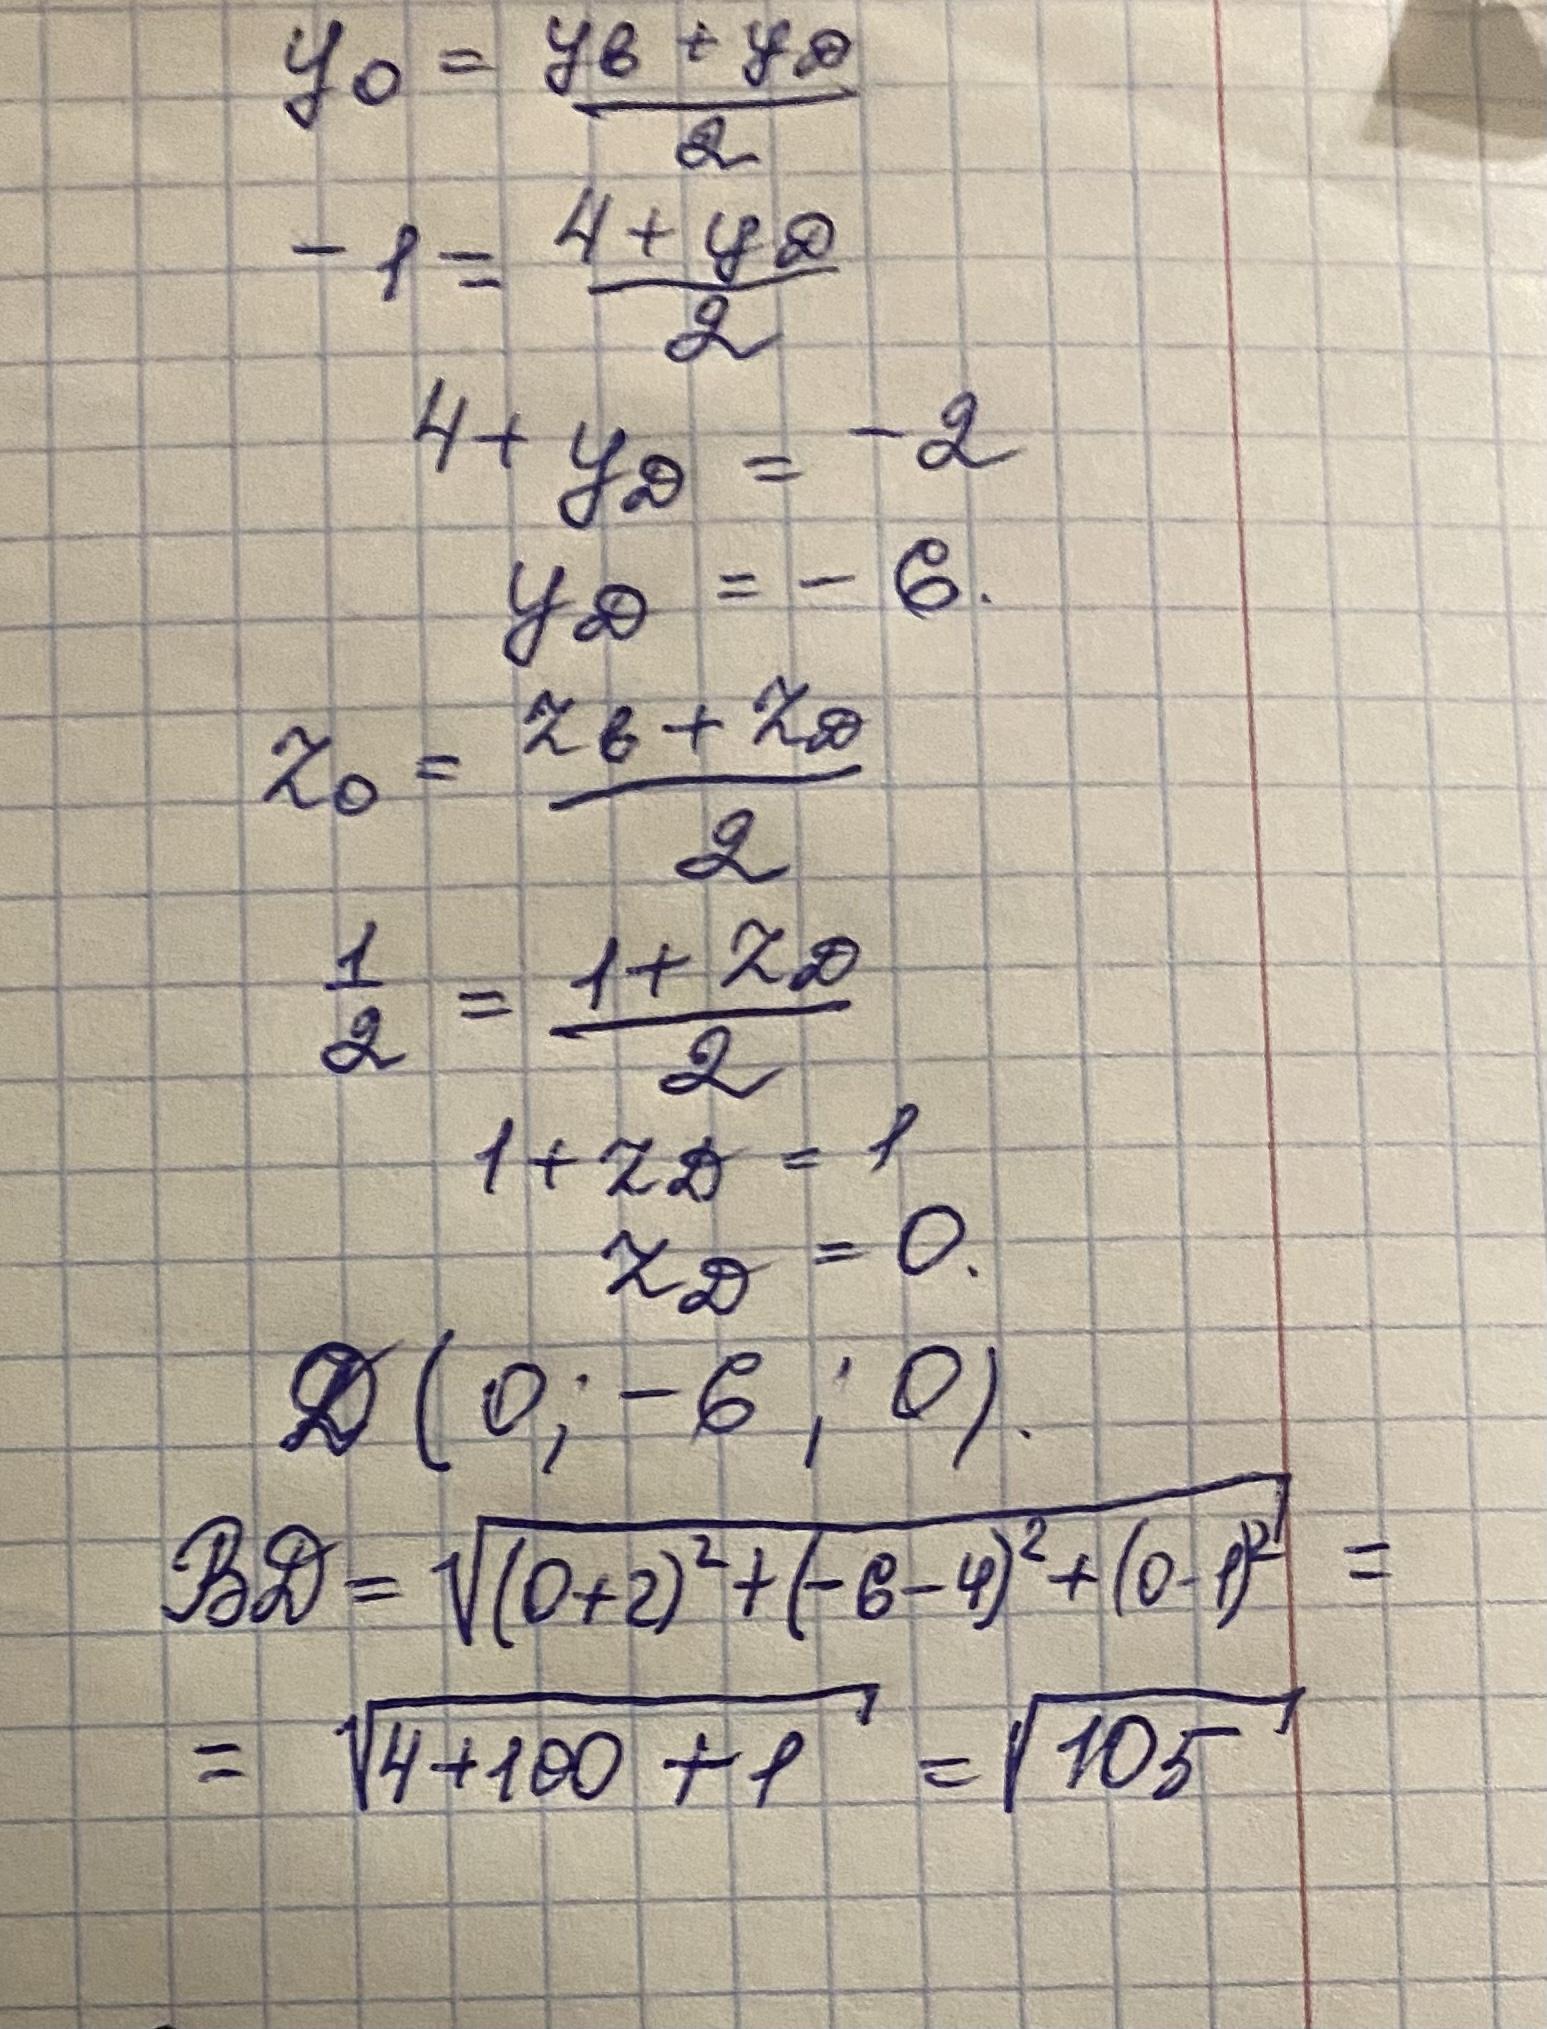 y₀ = (yв + yD)/2
-1 = (4 + yD)/2
4 + yD = -2
yD = -6.
z₀ = (zв + zD)/2
1/2 = (1 + zD)/2
1 + zD = 1
zD = 0.
D(0; -6; 0).
BD = √((0+2)² + (-6-4)² + (0-1)²) =
= √(4+100+1) = √105